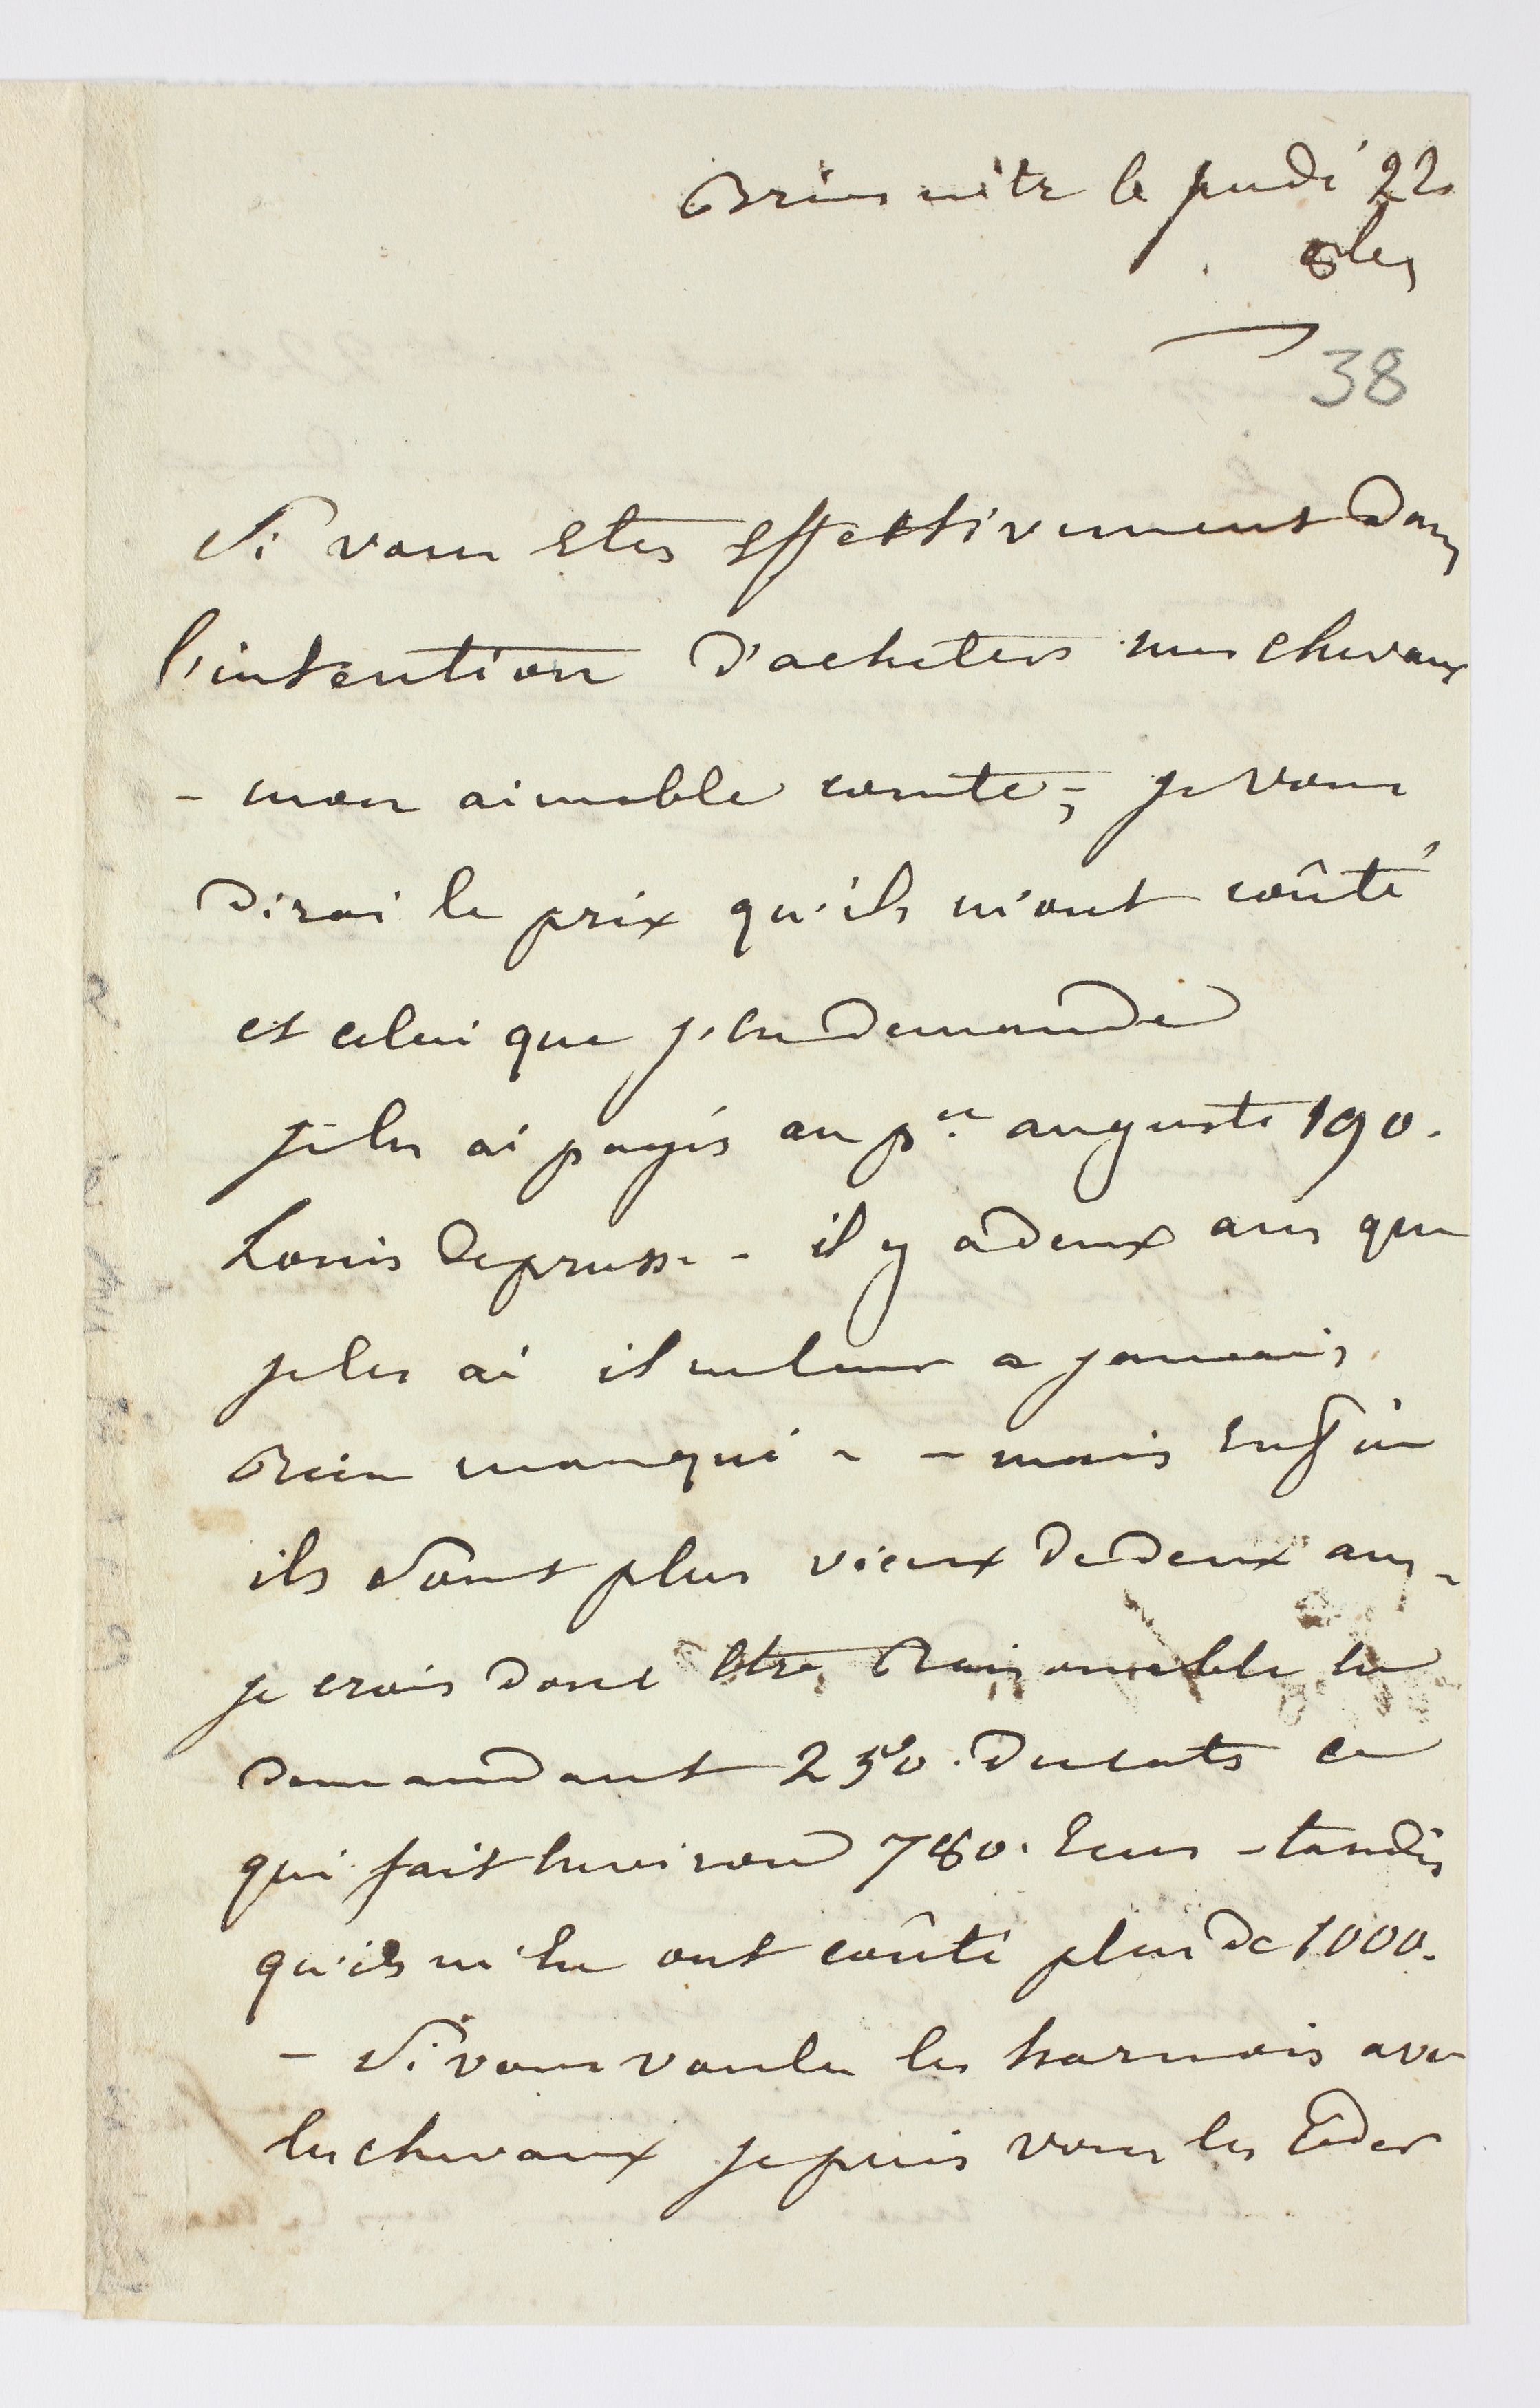 le jeudi 22
38
Si vous etes effectivement dans
l'intention d'acheter mes chevaux
- mon aimable comte; je vous
dirai le prix qu'ils m'ont coûté
et celui que j'en demande
je les ai payés au p.ce auguste 190.
Louis de prusse - il y a deux ans que
je les ai il ne leur a jamais
rien manqué - - mais enfin
ils sont plus vieux de deux ans -
je crois donc etre raisonnable en
demandant 250. ducats ce
qui fait environ 780. Ecus - tandis
qu'ils m'en ont coûté plus de 1000.
- Si vous voulez les harnois avec
les chevaux je puis vous les céder